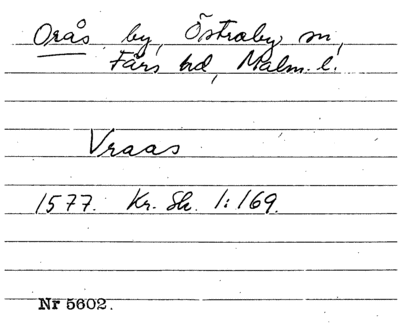 Orås by, Östraby sn,
Färs hd, Malm. l.
Vraas
1577. Kr. Sk. 1:169.
Nr 5602.